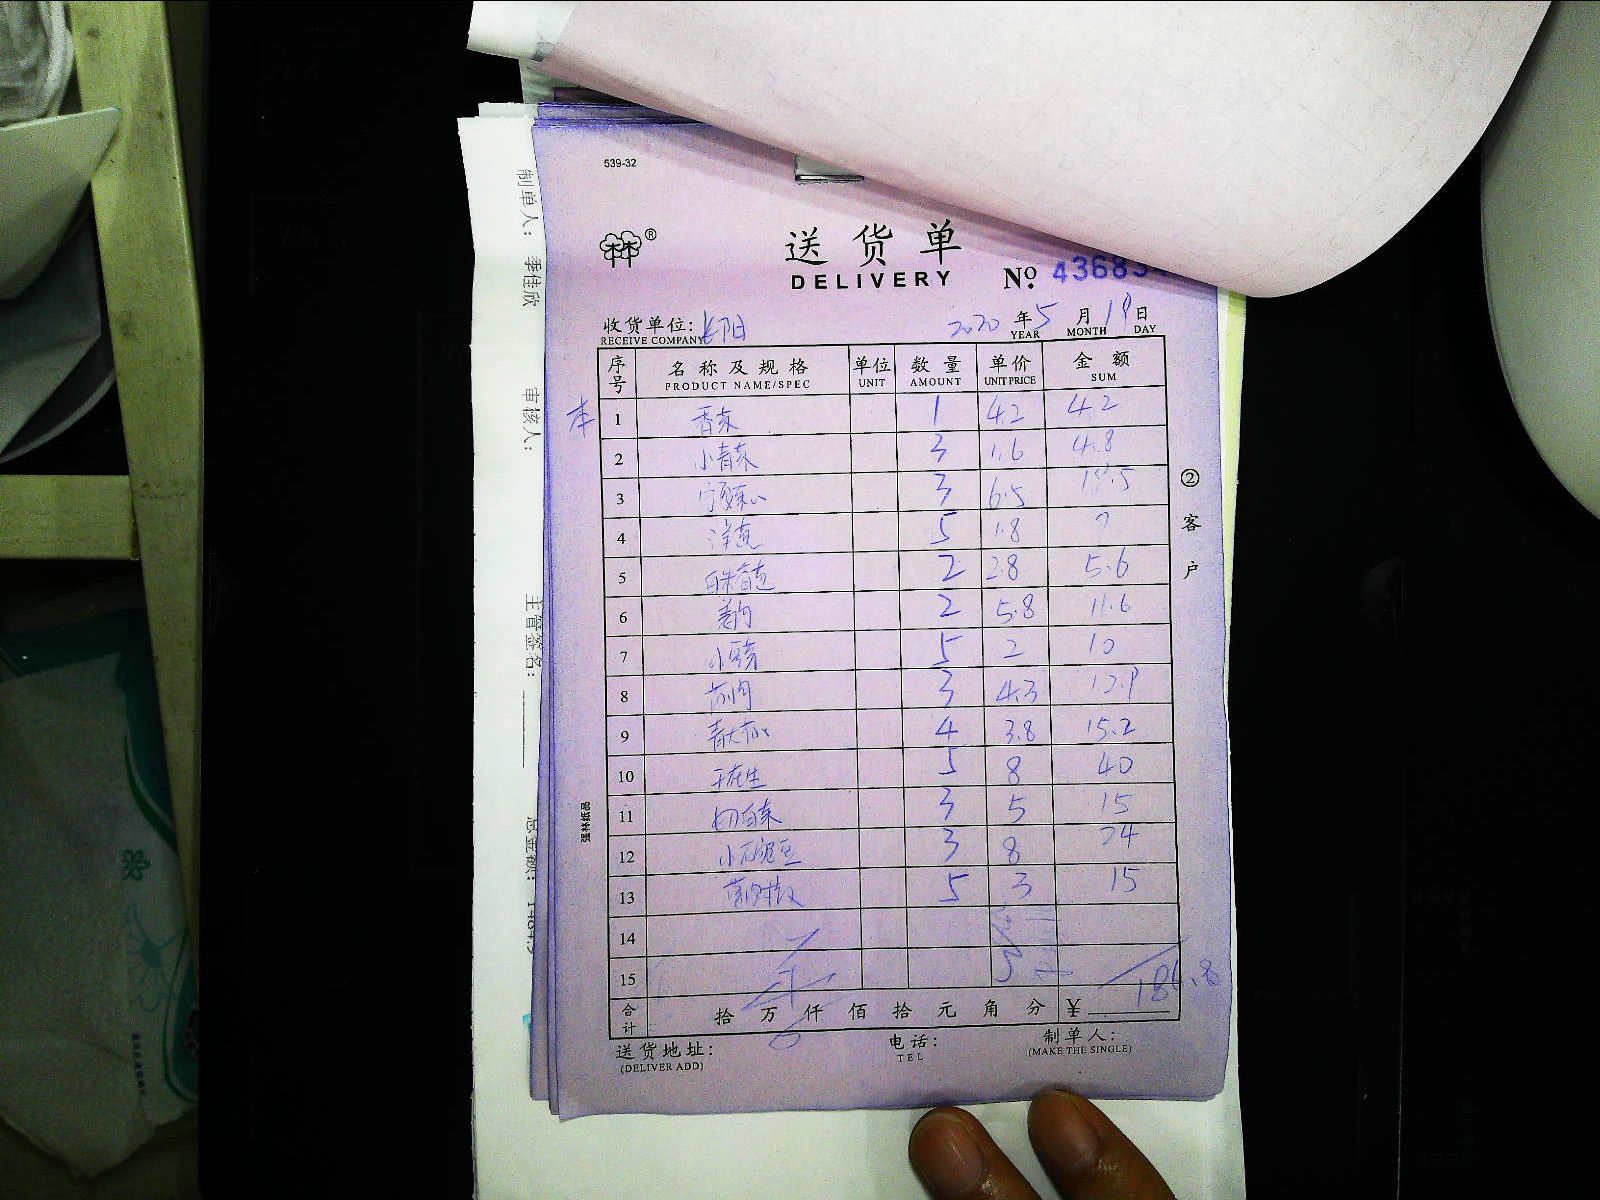 539-32
制单人： 季佳欣 审核人： 主管签名： 总金额：
送货单
DELIVERY
№ 43683
收货单位: 2020 年 5 月 19 日
RECEIVE COMPANY YEAR MONTH DAY
序号 名称及规格 单位 数量 单价 金额
PRODUCT NAME/SPEC UNIT AMOUNT UNIT PRICE SUM
本 1 香菜 1 4.2 4.2
2 小青菜 3 1.6 4.8
3 3 6.5 19.5
4 洋葱 5 1.8 9
5 2 2.8 5.6
6 2 5.8 11.6
7 5 2 10
8 3 4.3 12.9
9 4 3.8 15.2
10 5 8 40
11 3 5 15
12 3 8 24
13 5 3 15
14
15
合计 拾 万 仟 佰 拾 元 角 分 ¥ 186.8
送货地址: 电话: 制单人:
(DELIVER ADD) TEL (MAKE THE SINGLE)
②客户
强林纸品